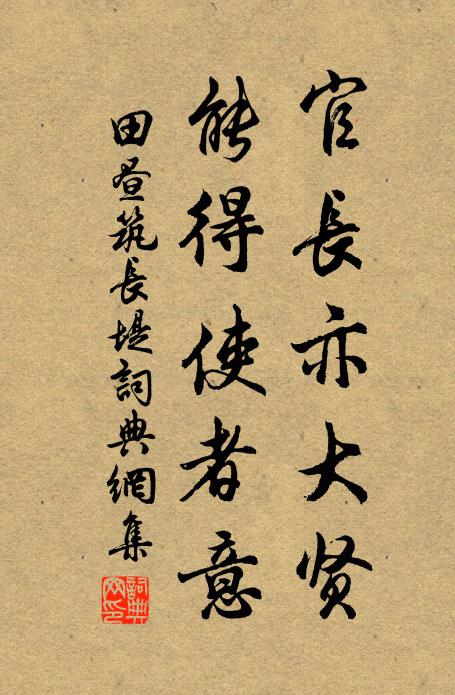 官長亦大贤
能得使者意
田昼筑長堤詞典網集
詞典网印